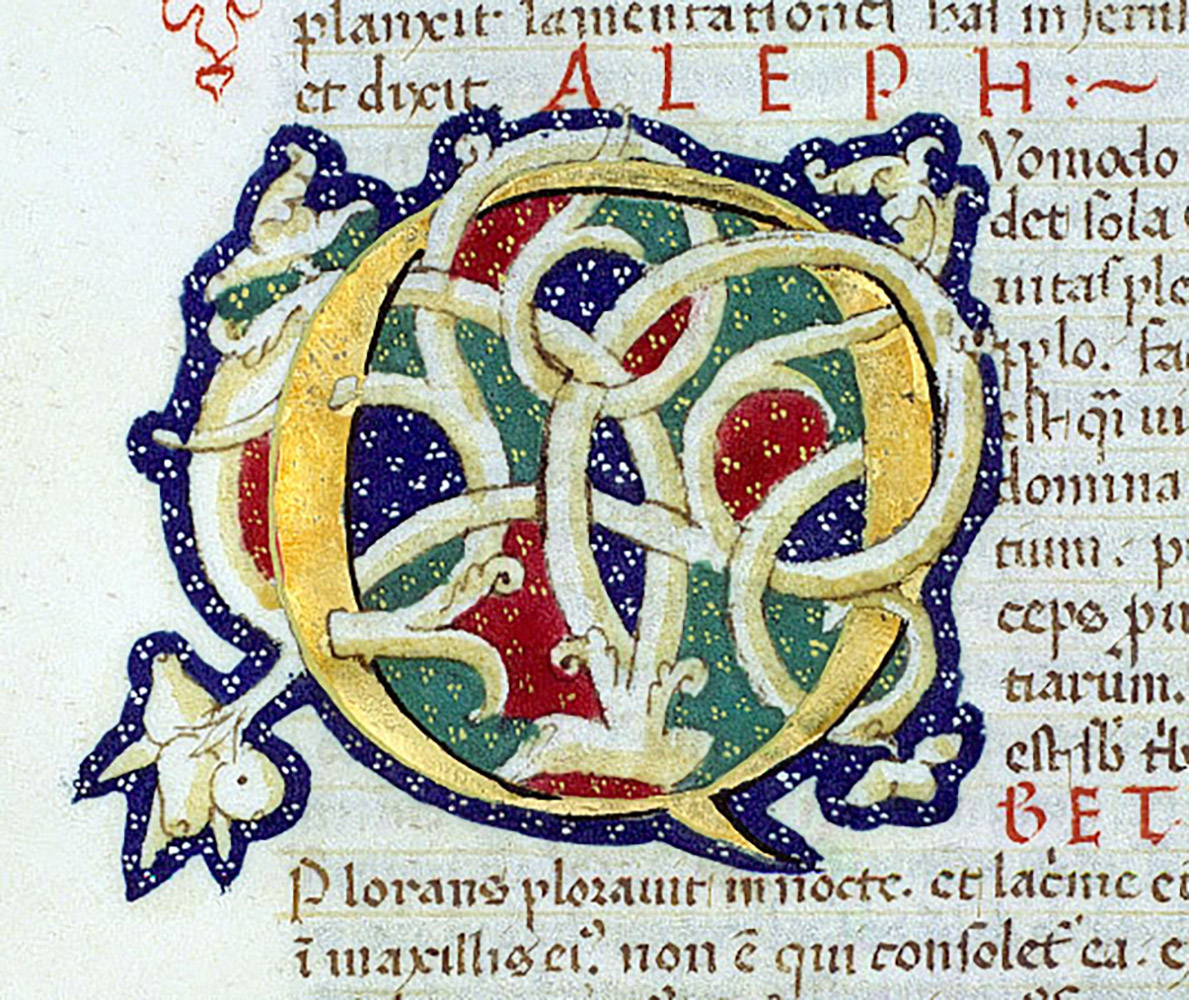 planxit lamentationes has in Jeru
et dixit ALEPH:~
Q Vomodo
det sola
uitas ple
pplo. fac
est qi ui
domina
tium. p
ceps pu
tiarum.
est sb tb
BET
Plorans plorauit in nocte. et lacime ei
ī maxillis ei⁹. non ē qui consolet ea. e